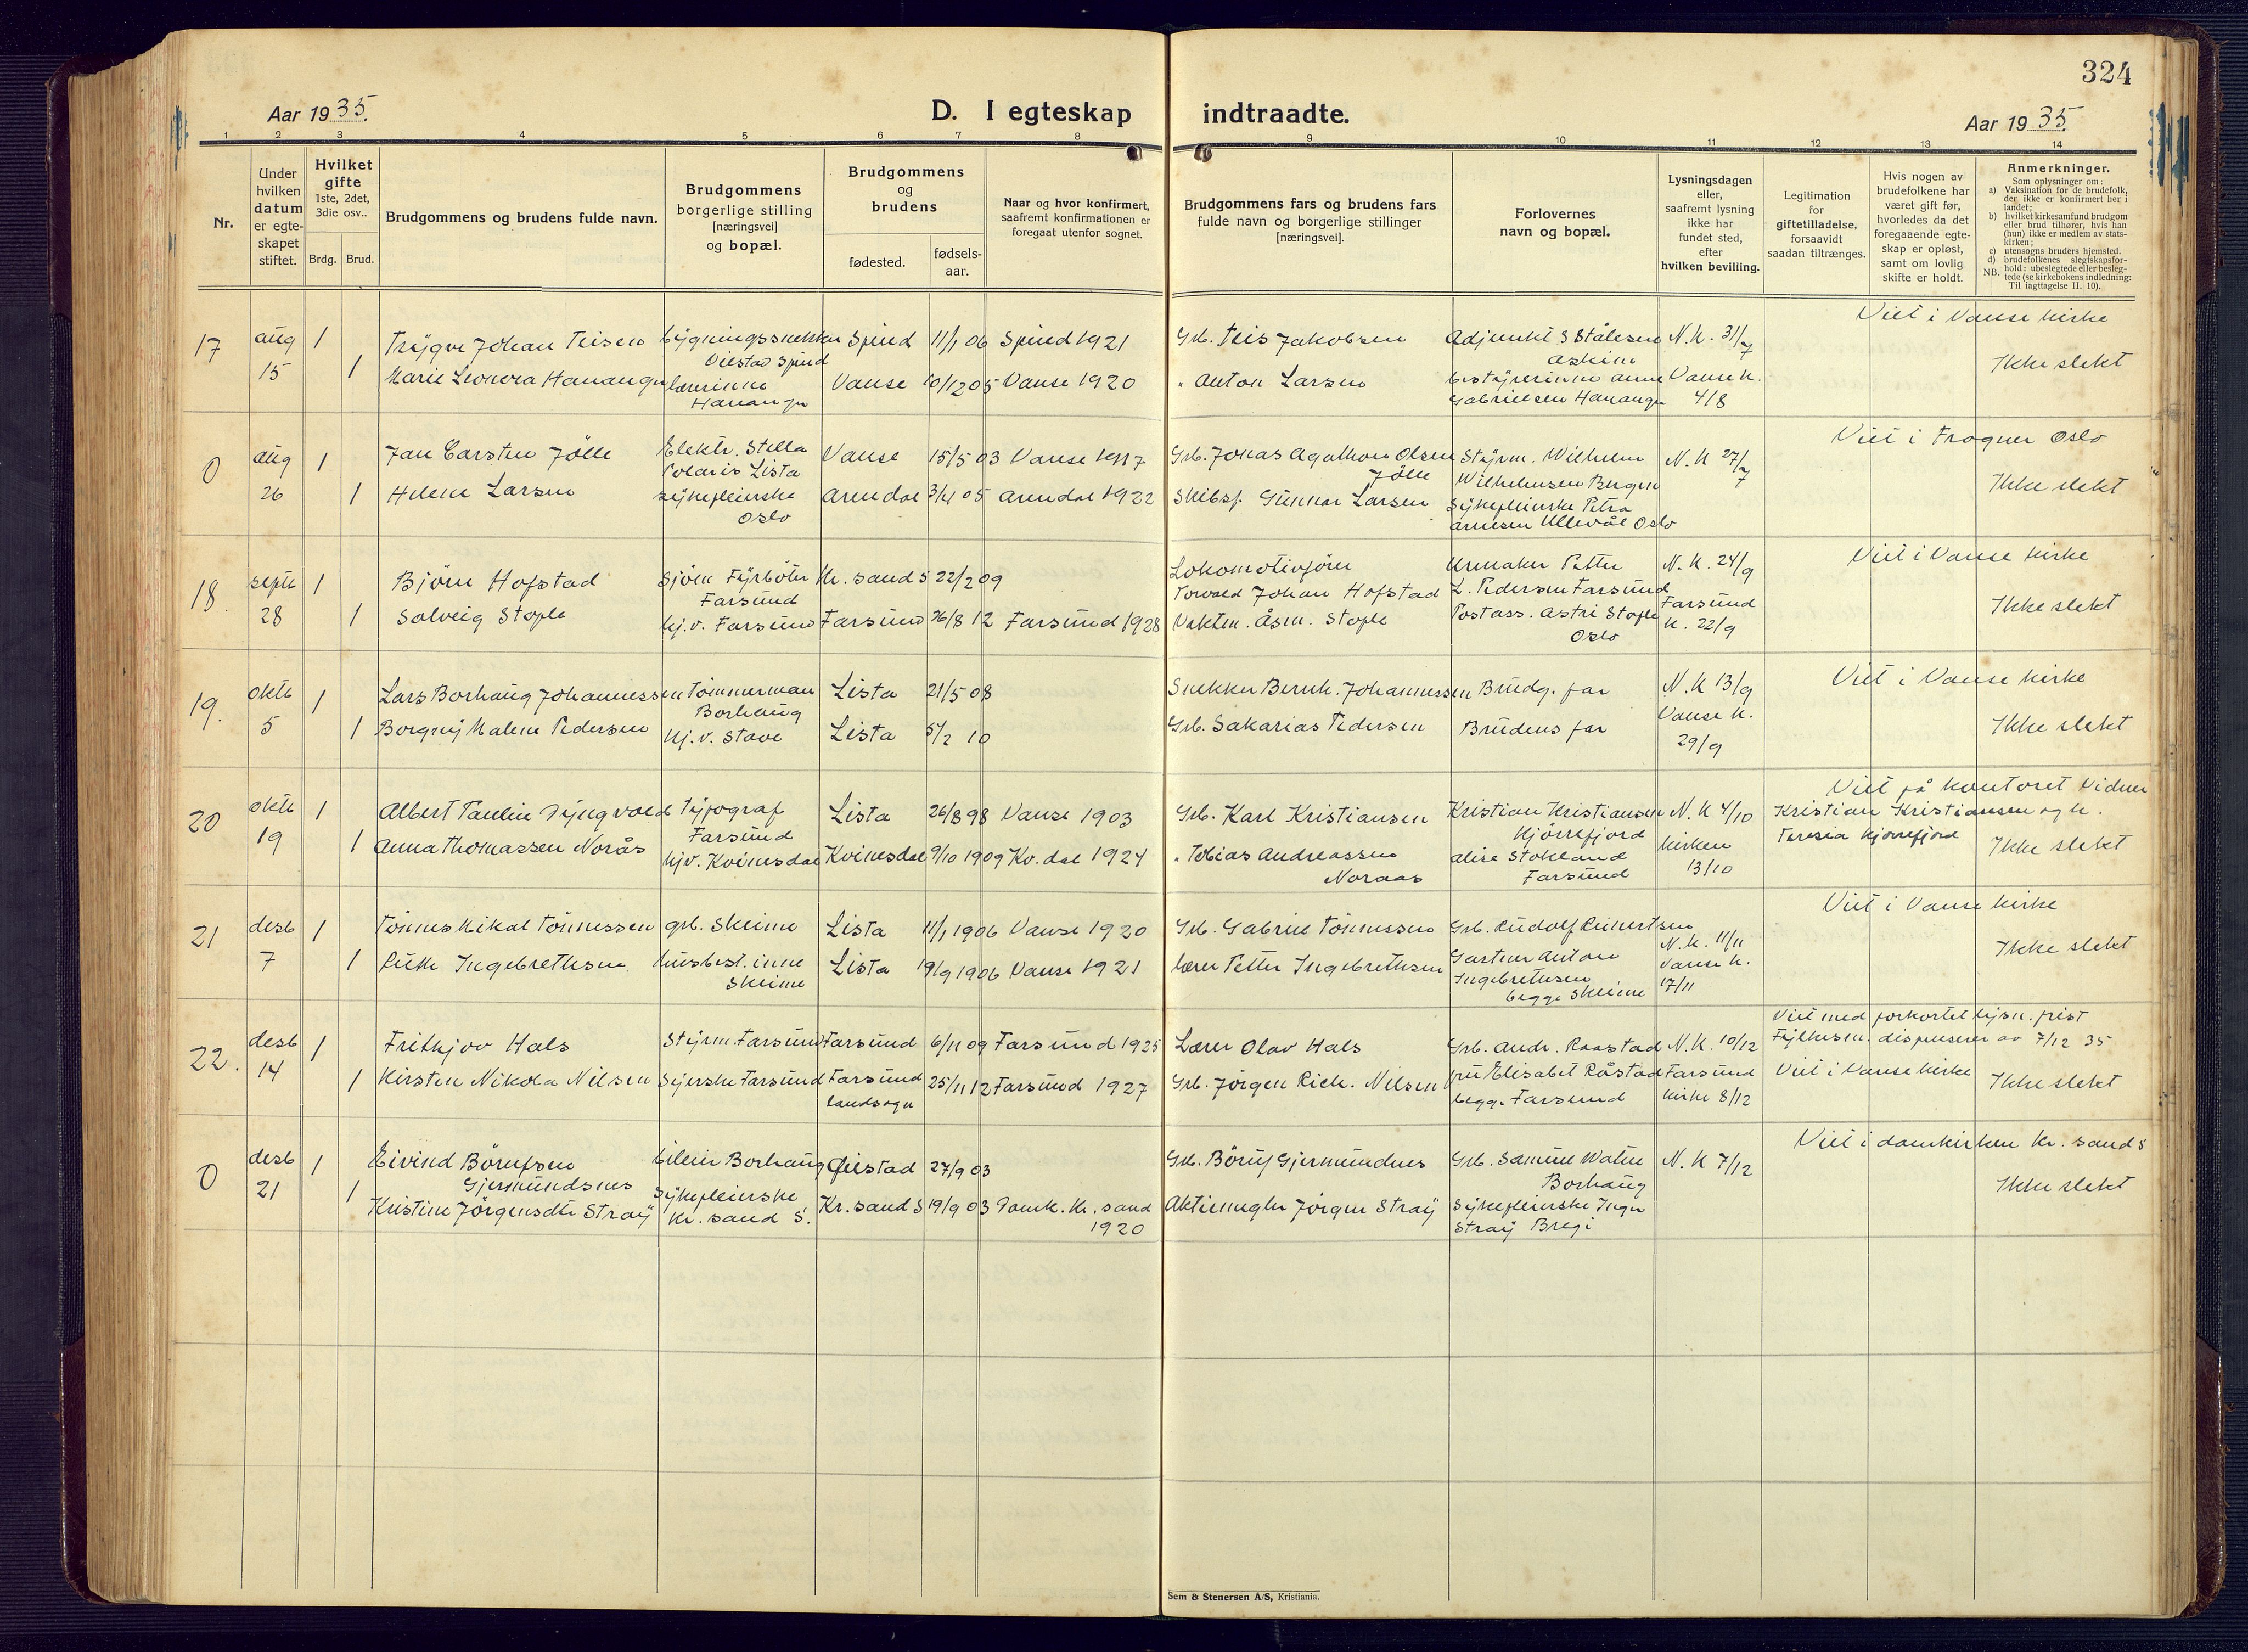 324
Aar 1935.
D. I egteskap indtraadte.
Aar 1935.
1 2 3 4 5 6 7 8 9 10 11 12 13 14
Nr.
Under
hvilken
datum
er egte-
skapet
stiftet.
Hvilket
gifte
1ste, 2det,
3die osv..
Brdg. Brud.
Brudgommens og brudens fulde navn.
Brudgommens
borgerlige stilling
[næringsvei]
og bopæl.
Brudgommens
og
brudens
fødested.
fødsels-
aar.
Naar og hvor konfirmert,
saafremt konfirmationen er
foregaat utenfor sognet.
Brudgommens fars og brudens fars
fulde navn og borgerlige stillinger
[næringsvei].
Forlovernes
navn og bopæl.
Lysningsdagen
eller,
saafremt lysning
ikke har
fundet sted,
efter
hvilken bevilling.
Legitimation
for
giftetilladelse,
forsaavidt
saadan tiltrænges.
Hvis nogen av
brudefolkene har
været gift før,
hvorledes da det
foregaaende egte-
skap er opløst,
samt om lovlig
skifte er holdt.
Anmerkninger.
Som oplysninger om:
a) Vaksination for de brudefolk,
der ikke er konfirmert her i
landet;
b) hvilket kirkesamfund brudgom
eller brud tilhører, hvis han
(hun) ikke er medlem av stats-
kirken;
c) utensogns bruders hjemsted.
d) brudefolkenes slegtskapsfor-
NB. hold: ubeslegtede eller besleg-
tede (se kirkebokens indledning:
Til iagttagelse II. 10).
Viet i Vanse kirke
17 aug 1 Trygve Johan Teisen bygningssnekker Spind 11/1 06 Spind 1921 Grb. Teis Jakobsen Adjunkt S Stålesen N.K. 31/7
Viestad Spind Askim Ikke slekt
15 1 Marie Leonora Hanangen lærerinne Vanse 10/12 05 Vanse 1920 " Anton Larsen bestyrerinne Anne Vanse k.
Hanangn Gabrielsen Hanangn 4/8
Viet i Frogner Oslo
0 aug 1 Jan Carsten Jölle Elektr. Stella Vanse 15/5 03 Vanse 1917 Grb. Jonas Agathon Olsen Styrm. Wilhelm N.K 27/7
Polaris Lista Jölle Wilhelmsen Bergen
26 1 Helene Larsen sykepleierske Arendal 3/4 05 Arendal 1922 Skibsf. Gunnar Larsen Sykepleierske Petra Ikke slekt
Oslo Arnesen Ullevål Oslo
Viet i Vanse kirke
18. septb 1 Björn Hofstad Sjöm Fyrböter Kr. sand S 22/2 09 Lokomotivförer Urmaker Petter N.K. 24/9
Farsund Torvald Johan Hofstad Z. Pedersen Farsund
28 1 Solveig Stople hj.v. Farsund Farsund 26/8 12 Farsund 1928 Vaktm. Åsm. Stople Postass. Astri Stople Farsund Ikke slekt
Oslo k. 22/9
Viet i Vanse kirke
19. oktb 1 Lars Borhaug Johannessen Tömmerman Lista 21/5 08 Snekker Bernh. Johannessen Brudg. far N.K 13/9
Borhaug Vanse k.
5 1 Borgny Malene Pedersen hj.v. Stave Lista 5/2 10 Grb. Sakarias Pedersen Brudens far 29/9 Ikke slekt
Viet på kontoret Vidner
20 oktb 1 Albert Paulin Syngvald Typograf Lista 26/8 98 Vanse 1903 Grb. Karl Kristiansen Kristian Kristiansen N.K 4/10 Kristian Kristiansen og h.
Farsund Kjörrefjord kirken Teresia Kjörrefjord
19 1 Anna Thomassen Norås hjv. Kvinesdal Kvinesdal 9/10 1909 Kv. dal 1924 " Tobias Andreassen Alise Stokland 13/10 Ikke slekt
Noraas Farsund
Viet i Vanse kirke
21 desb 1 Tönnes Mikal Tönnessen grb. Skeime Lista 11/1 1906 Vanse 1920 Grb. Gabriel Tönnessen Grb. Rudolf Reinertsen N.K. 11/11
7 1 Ruth Ingebrethsen husbest.inne Lista 19/9 1906 Vanse 1921 Lærer Petter Ingebrethsen Gartner Anton Vanse k. Ikke slekt
Skeime Ingebrethsen 17/11
begge Skeime
Viet med forkortet lysn. frist
22. desb 1 Frithjov Hals Styrm. Farsund Farsund 6/11 09 Farsund 1925 Lærer Olav Hals Grb. Andr. Raastad N.K. 10/12 Fylkesm. dispenserer av 7/12 35
14 1 Kirsten Nikola Nilsen Syerske Farsund Farsund 25/11 12 Farsund 1927 Grb. Jörgen Rich. Nilsen fru Elisabet Råstad Farsund Viet i Vanse kirke Ikke slekt
landsogn begge Farsund kirke 8/12
Viet i domkirken Kr. sand S
0 desb 1 Eivind Börufsen Bileier Borhaug Öiestad 27/9 03 Grb. Böruf Gjermundnes Grb. Samuel Watne N.K 7/12
Gjermundsnes Borhaug
21 1 Kristine Jörgensdtr Stray Sykepleierske Kr. sand S 19/9 03 Domk. Kr. sand Aktiemegler Jörgen Stray Sykepleierske Inger Ikke slekt
Kr. sand S. 1920 Stray
Sem & Stenersen A/S, Kristiania.